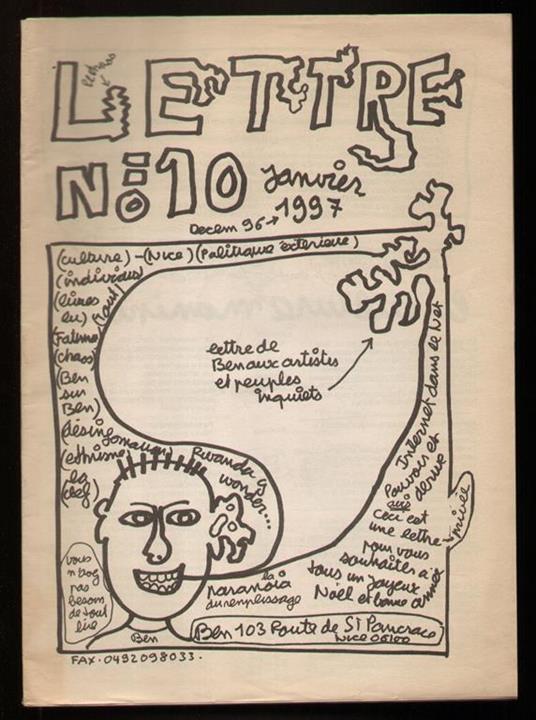 LETTRE
N:10 janvier
1997
Decem 96→
(culture)-(Nice)(Politique exterieure)
(individus)
(livres
lu)
(Fatima)
(chaos)
(Ben
sur
Ben)
(désinformation)
(ethnisme)
la
clef)
lettre de
Ben aux artistes
et peuples
inquiets
Internet dans le Net
Pouvoir et
dérive
Ceci est
une lettre
privée
pour vous
souhaiter à
tous, un joyeux
Noël et bonne année
Rwanda is
wonder...
la
Paranoïa
du remplissage
vous
n'avez
pas
besoin
de tout
lire
Ben
Ben 103 Route de St Pancrace
Nice 06100
FAX. 0492098033.